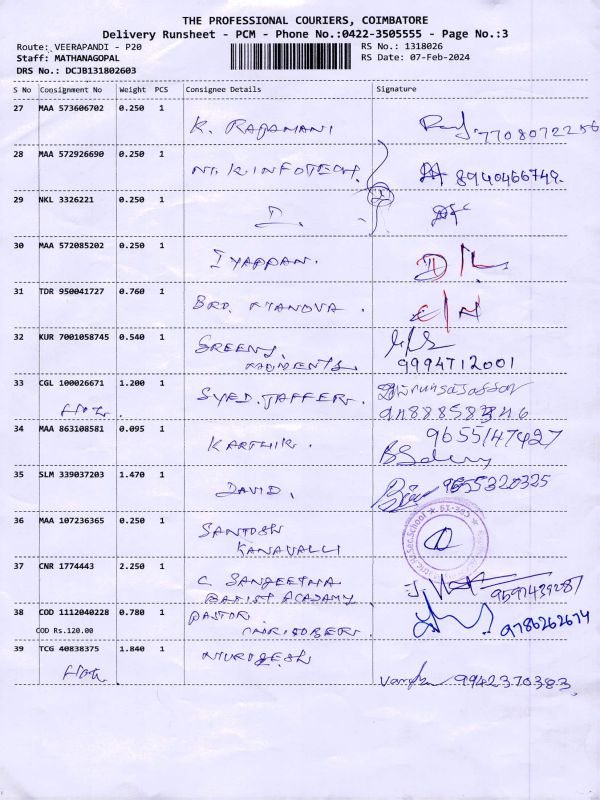 THE PROFESSIONAL COURIERS, COIMBATORE
Delivery Runsheet - PCM - Phone No.:0422-3505555 - Page No.:3
Route: VEERAPANDI - P20
RS No.: 1318026
Staff: MATHANAGOPAL
RS Date: 07-Feb-2024
DRS No.: DCJB131802603
S No Consignment No Weight PCS Consignee Details Signature
27 MAA 573606702 0.250 1
K. RAJAMANI
7708072256
28 MAA 572926690 0.250 1
M.K.INFOTECH.
8940466749.
29 NKL 3326221 0.250 1
30 MAA 572085202 0.250 1
IYAPPAN.
D/L
31 TDR 950041727 0.760 1
BRO. MANOVA.
32 KUR 7001058745 0.540 1
GREENS
MOMENTS.
9994712001
33 CGL 100026671 1.200 1
SYED.JAFFER.
34 MAA 863108581 0.095 1
KARTHIK.
9655147427
35 SLM 339037203 1.470 1
DAVID.
9655320325
36 MAA 107236365 0.250 1
SANTOSH
KANAVALLI
37 CNR 1774443 2.250 1
C SANGEETHA
BAPTIST ACADAMY
9597439287
38 COD 1112040228 0.780 1
PASTOR.
COD Rs.120.00
CHRISOBERT.
9786262674
39 TCG 40838375 1.840 1
MURUGESH
9942370383